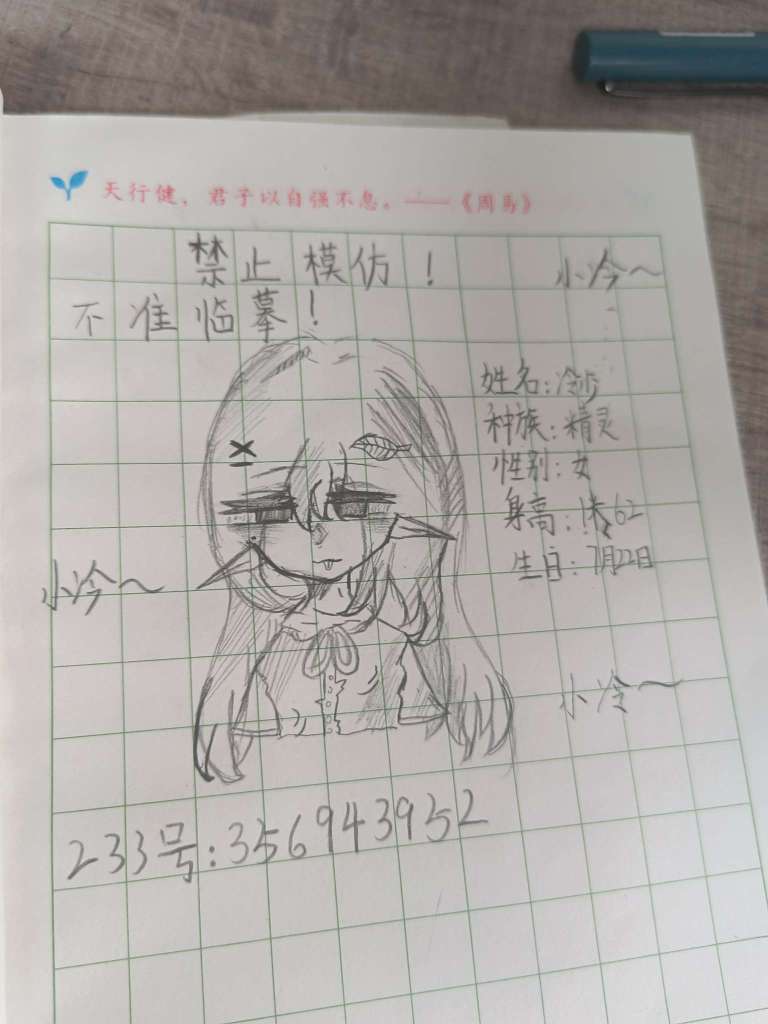 天行健，君子以自强不息。——《周易》
禁止模仿！
小冷～
不准临摹！
姓名：冷沙
种族：精灵
性别：女
身高：1米62
生日：7月22日
小冷～
小冷～
233号：356943952